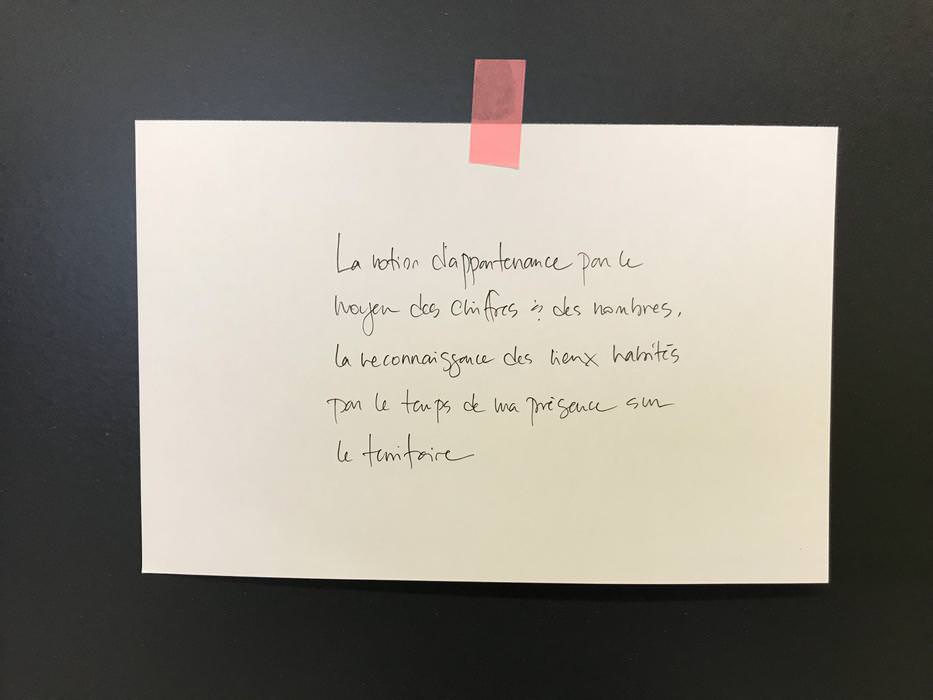 La notion d'appartenance par le
moyen des chiffres & des nombres,
la reconnaissance des lieux habités
par le temps de ma présence sur
le territoire